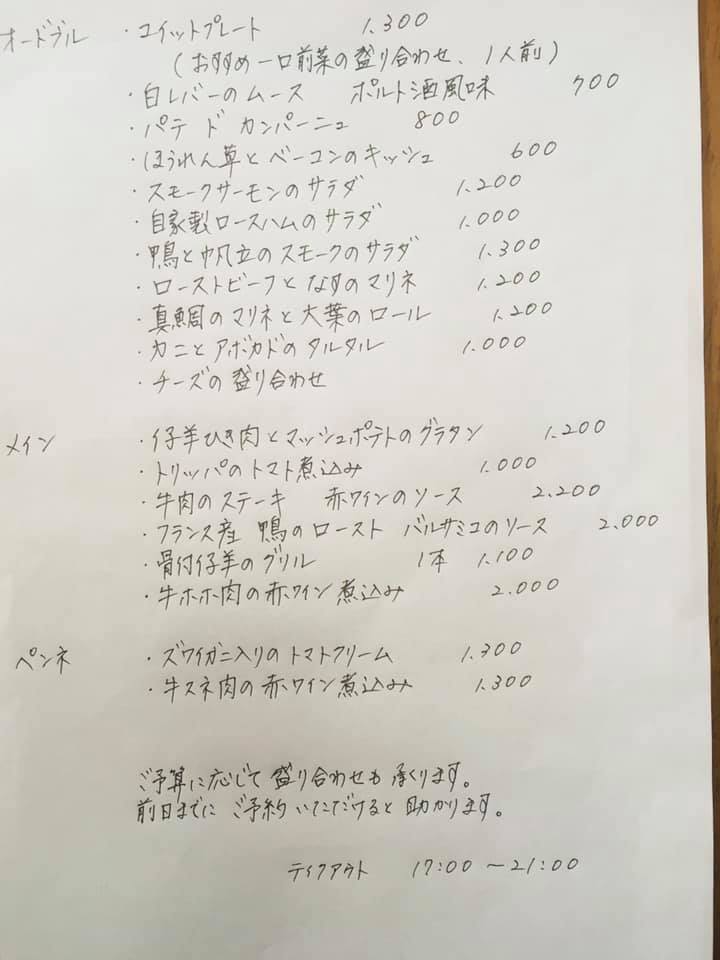 オードブル ・コイットプレート 1.300
(おすすめ一口前菜の盛り合わせ、1人前)
・白レバーのムース ポルト酒風味 700
・パテ ド カンパーニュ 800
・ほうれん草とベーコンのキッシュ 600
・スモークサーモンのサラダ 1.200
・自家製ロースハムのサラダ 1.000
・鴨と帆立のスモークのサラダ 1.300
・ローストビーフとなすのマリネ 1.200
・真鯛のマリネと大葉のロール 1.200
・カニとアボカドのタルタル 1.000
・チーズの盛り合わせ
メイン ・仔羊ひき肉とマッシュポテトのグラタン 1.200
・トリッパのトマト煮込み 1.000
・牛肉のステーキ 赤ワインのソース 2.200
・フランス産 鴨のロースト バルサミコのソース 2.000
・骨付仔羊のグリル 1本 1.100
・牛ホホ肉の赤ワイン煮込み 2.000
ペンネ ・ズワイガニ入りのトマトクリーム 1.300
・牛スネ肉の赤ワイン煮込み 1.300
ご予算に応じて盛り合わせも承ります。
前日までにご予約いただけると助かります。
テイクアウト 17:00～21:00